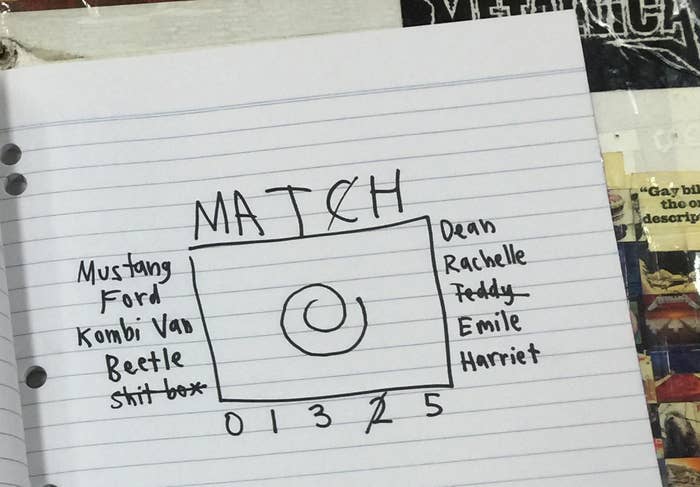 METALLICA
"Gay bil
the o
descrip
MATCH
Mustang
Ford
Kombi Van
Beetle
shit box
Dean
Rachelle
Teddy
Emile
Harriet
0 1 3 2 5